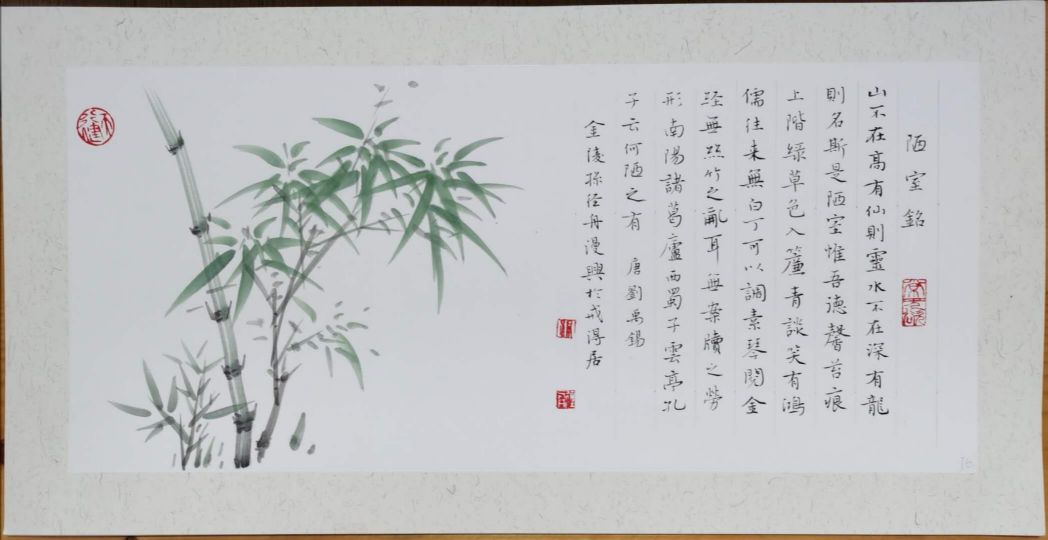 陋室銘
山不在高有仙則靈水不在深有龍
則名斯是陋室惟吾德馨苔痕
上階綠草色入簾青談笑有鴻
儒往来無白丁可以調素琴閱金
经無丝竹之亂耳無案牘之勞
形南陽諸葛廬西蜀子雲亭孔
子云何陋之有 唐劉禹錫
金陵孫径舟漫興於戒得居